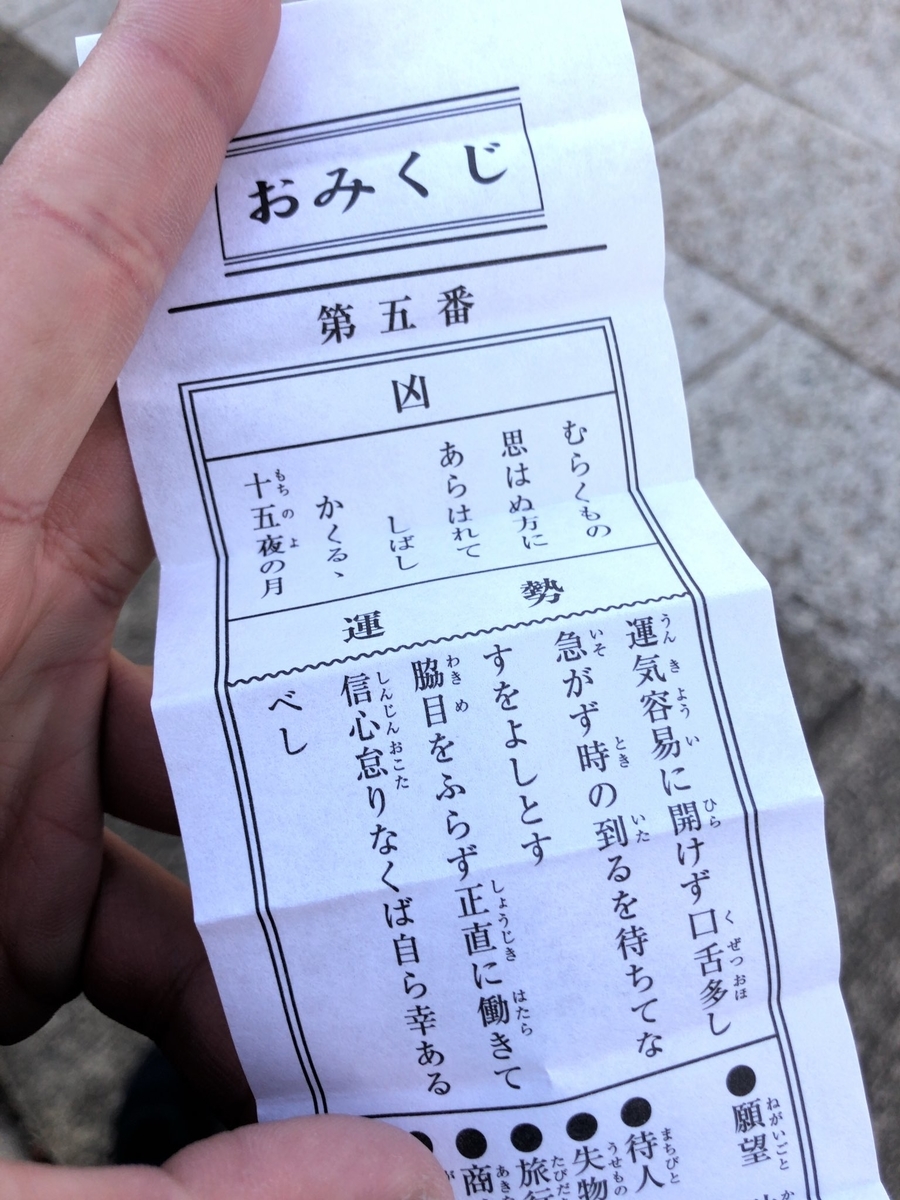 おみくじ
第五番
凶
むらくもの
思はぬ方に
あらはれて
しばし
かくるゝ
十五夜の月
運勢
運気容易に開けず口舌多し
急がず時の到るを待ちてな
すをよしとす
脇目をふらず正直に働きて
信心怠りなくば自ら幸ある
べし
●願望
●待人
●失物
●旅行
●商